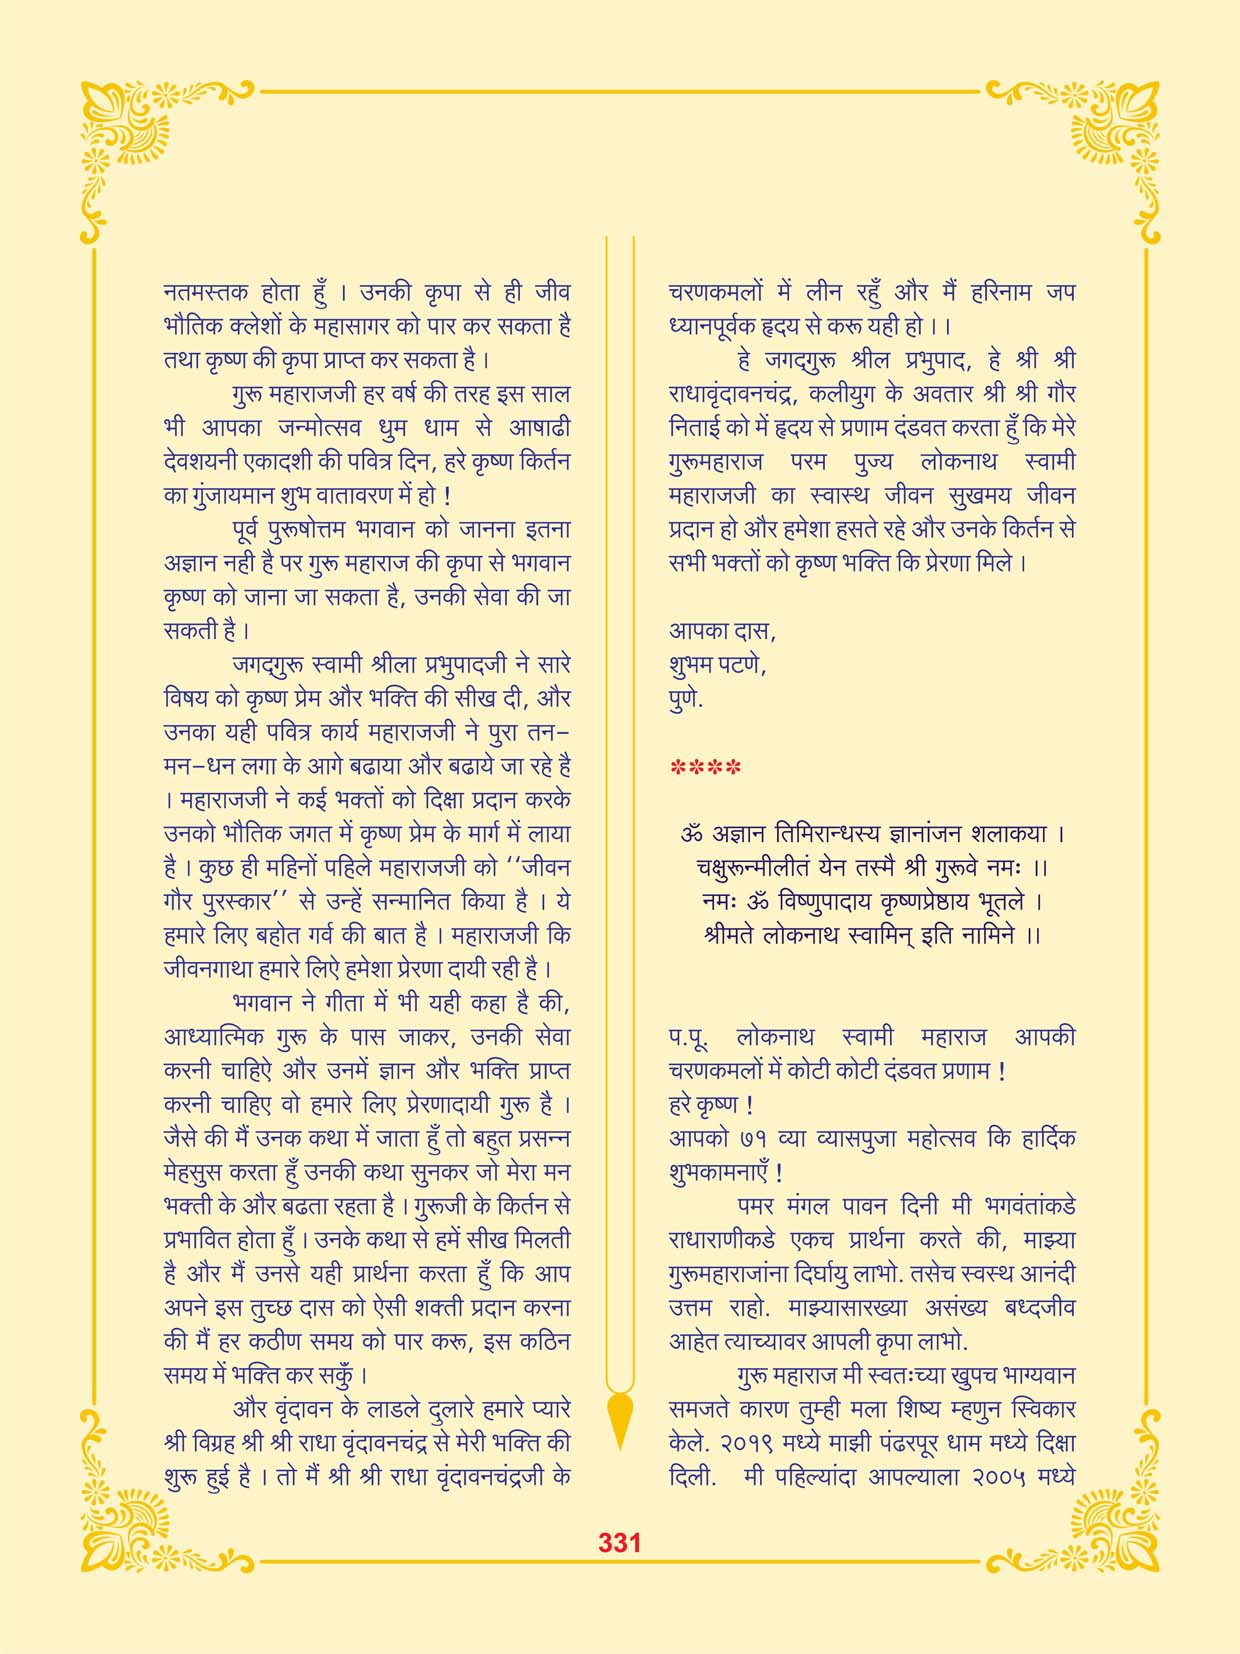 नतमस्तक होता हुँ । उनकी कृपा से ही जीव
भौतिक क्लेशों के महासागर को पार कर सकता है
तथा कृष्ण की कृपा प्राप्त कर सकता है ।
गुरू महाराजजी हर वर्ष की तरह इस साल
भी आपका जन्मोत्सव धुम धाम से आषाढी
देवशयनी एकादशी की पवित्र दिन, हरे कृष्ण किर्तन
का गुंजायमान शुभ वातावरण में हो !
पूर्व पुरूषोत्तम भगवान को जानना इतना
अज्ञान नही है पर गुरू महाराज की कृपा से भगवान
कृष्ण को जाना जा सकता है, उनकी सेवा की जा
सकती है ।
जगद्गुरू स्वामी श्रीला प्रभुपादजी ने सारे
विषय को कृष्ण प्रेम और भक्ति की सीख दी, और
उनका यही पवित्र कार्य महाराजजी ने पुरा तन-
मन-धन लगा के आगे बढाया और बढाये जा रहे है
। महाराजजी ने कई भक्तों को दिक्षा प्रदान करके
उनको भौतिक जगत में कृष्ण प्रेम के मार्ग में लाया
है । कुछ ही महिनों पहिले महाराजजी को ‘‘जीवन
गौर पुरस्कार’’ से उन्हें सन्मानित किया है । ये
हमारे लिए बहोत गर्व की बात है । महाराजजी कि
जीवनगाथा हमारे लिऐ हमेशा प्रेरणा दायी रही है ।
भगवान ने गीता में भी यही कहा है की,
आध्यात्मिक गुरू के पास जाकर, उनकी सेवा
करनी चाहिऐ और उनमें ज्ञान और भक्ति प्राप्त
करनी चाहिए वो हमारे लिए प्रेरणादायी गुरू है ।
जैसे की मैं उनक कथा में जाता हुँ तो बहुत प्रसन्न
मेहसुस करता हुँ उनकी कथा सुनकर जो मेरा मन
भक्ती के और बढता रहता है । गुरूजी के किर्तन से
प्रभावित होता हुँ । उनके कथा से हमें सीख मिलती
है और मैं उनसे यही प्रार्थना करता हुँ कि आप
अपने इस तुच्छ दास को ऐसी शक्ती प्रदान करना
की मैं हर कठीण समय को पार करू, इस कठिन
समय में भक्ति कर सकुँ ।
और वृंदावन के लाडले दुलारे हमारे प्यारे
श्री विग्रह श्री श्री राधा वृंदावनचंद्र से मेरी भक्ति की
शुरू हुई है । तो मैं श्री श्री राधा वृंदावनचंद्रजी के
चरणकमलों में लीन रहुँ और मैं हरिनाम जप
ध्यानपूर्वक हृदय से करू यही हो ।।
हे जगद्गुरू श्रील प्रभुपाद, हे श्री श्री
राधावृंदावनचंद्र, कलीयुग के अवतार श्री श्री गौर
निताई को में हृदय से प्रणाम दंडवत करता हुँ कि मेरे
गुरूमहाराज परम पुज्य लोकनाथ स्वामी
महाराजजी का स्वास्थ जीवन सुखमय जीवन
प्रदान हो और हमेशा हसते रहे और उनके किर्तन से
सभी भक्तों को कृष्ण भक्ति कि प्रेरणा मिले ।
आपका दास,
शुभम पटणे,
पुणे.
****
ॐ अज्ञान तिमिरान्धस्य ज्ञानांजन शलाकया ।
चक्षुरून्मीलीतं येन तस्मै श्री गुरूवे नमः ।।
नमः ॐ विष्णुपादाय कृष्णप्रेष्ठाय भूतले ।
श्रीमते लोकनाथ स्वामिन् इति नामिने ।।
प.पू. लोकनाथ स्वामी महाराज आपकी
चरणकमलों में कोटी कोटी दंडवत प्रणाम !
हरे कृष्ण !
आपको ७१ व्या व्यासपुजा महोत्सव कि हार्दिक
शुभकामनाएँ !
पमर मंगल पावन दिनी मी भगवंतांकडे
राधाराणीकडे एकच प्रार्थना करते की, माझ्या
गुरूमहाराजांना दिर्घायु लाभो. तसेच स्वस्थ आनंदी
उत्तम राहो. माझ्यासारख्या असंख्य बध्दजीव
आहेत त्याच्यावर आपली कृपा लाभो.
गुरू महाराज मी स्वतःच्या खुपच भाग्यवान
समजते कारण तुम्ही मला शिष्य म्हणुन स्विकार
केले. २०१९ मध्ये माझी पंढरपूर धाम मध्ये दिक्षा
दिली. मी पहिल्यांदा आपल्याला २००५ मध्ये
331